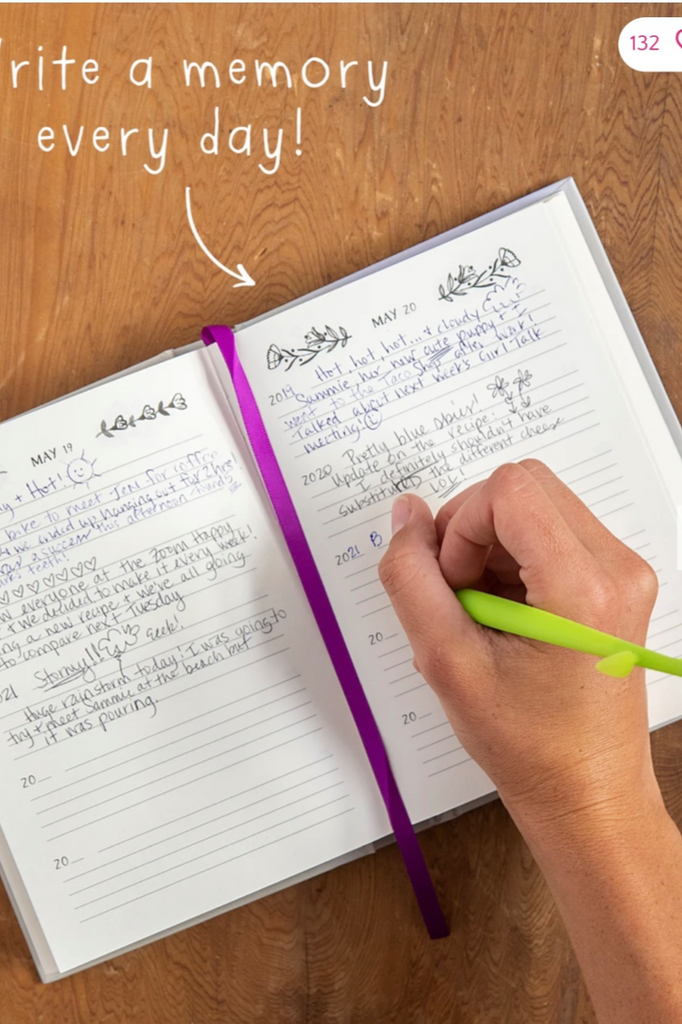 rite a memory
every day!
132
MAY 19
y + Hot!
bike to meet Jen for coffee
we wound up hanging out for 2 hrs!
this afternoon
teeth!
w everyone at the zoom happy
+ we decided to make it every week!
ing a new recipe + we're all going
to compare next Tuesday
21 Stormy!! Eek!
Huge rainstorm today! I was going to
try + meet Sammie at the beach but
it was pouring.
20
20
MAY 20
2019 Hot, hot, hot... + cloudy
Sammie, her new cute puppy + I
went to the Taco Shop after work!
Talked about next week's Girl Talk
meeting!
2020 Pretty blue skies!
Update on the recipe:
I definitely shouldn't have
substituted the different cheese
LOL!
2021 B
20
20